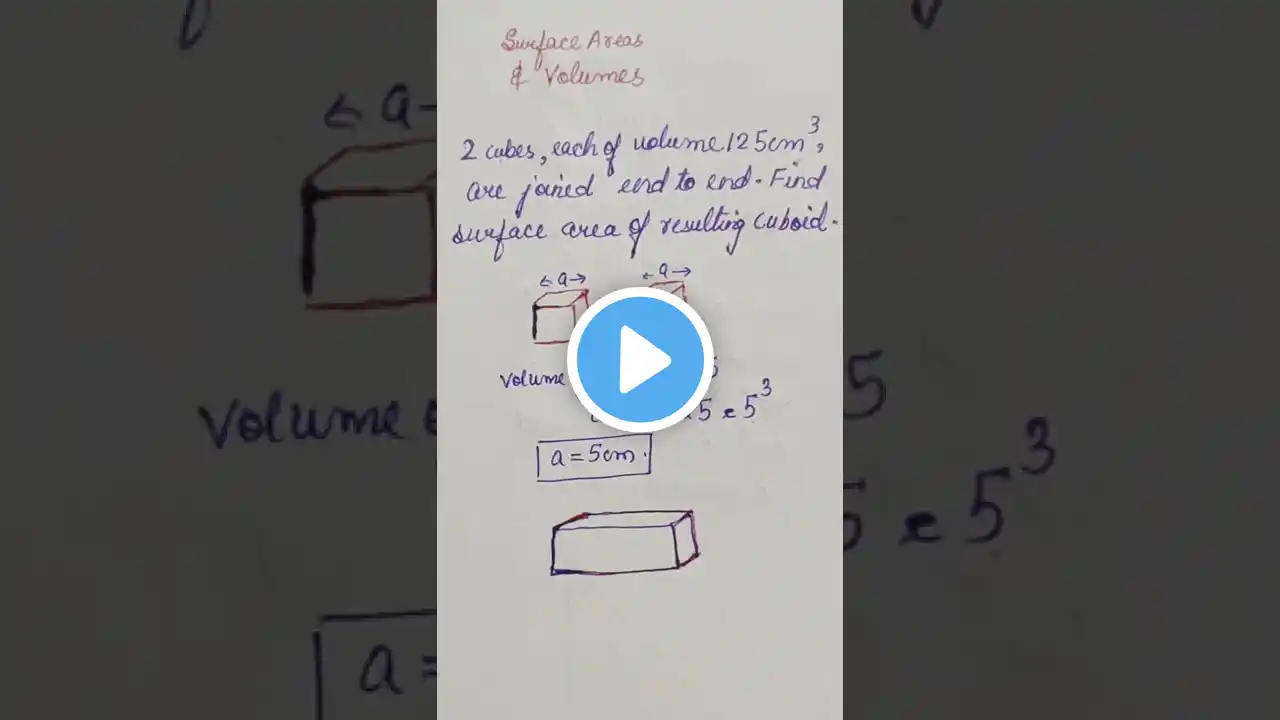 Surface Areas
& Volumes
2 cubes, each of volume 125cm³,
are joined end to end. Find
surface area of resulting cuboid.
← a → ← a →
Volume 5
5 = 5³
a = 5cm.